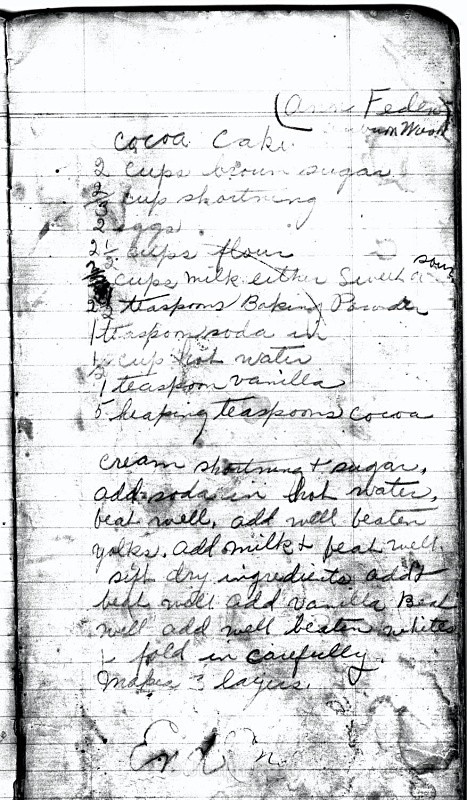 (Anna Feden
Cocoa Cake.
2 cups brown sugar
2/3 cup shortning
2 eggs.
2 1/2 cups flour
cups milk either sweet or sour
2 1/2 teaspoons Baking Powder
1 teaspoon soda in
1/2 cup hot water
1 teaspoon vanilla
5 heaping teaspoons cocoa
cream shortning & sugar,
add soda in hot water,
beat well, add well beaten
yolks. add milk & beat well.
sift dry ingredients add &
beat well add vanilla Beat
well add well beaten whites
& fold in carefully.
Makes 3 layers.